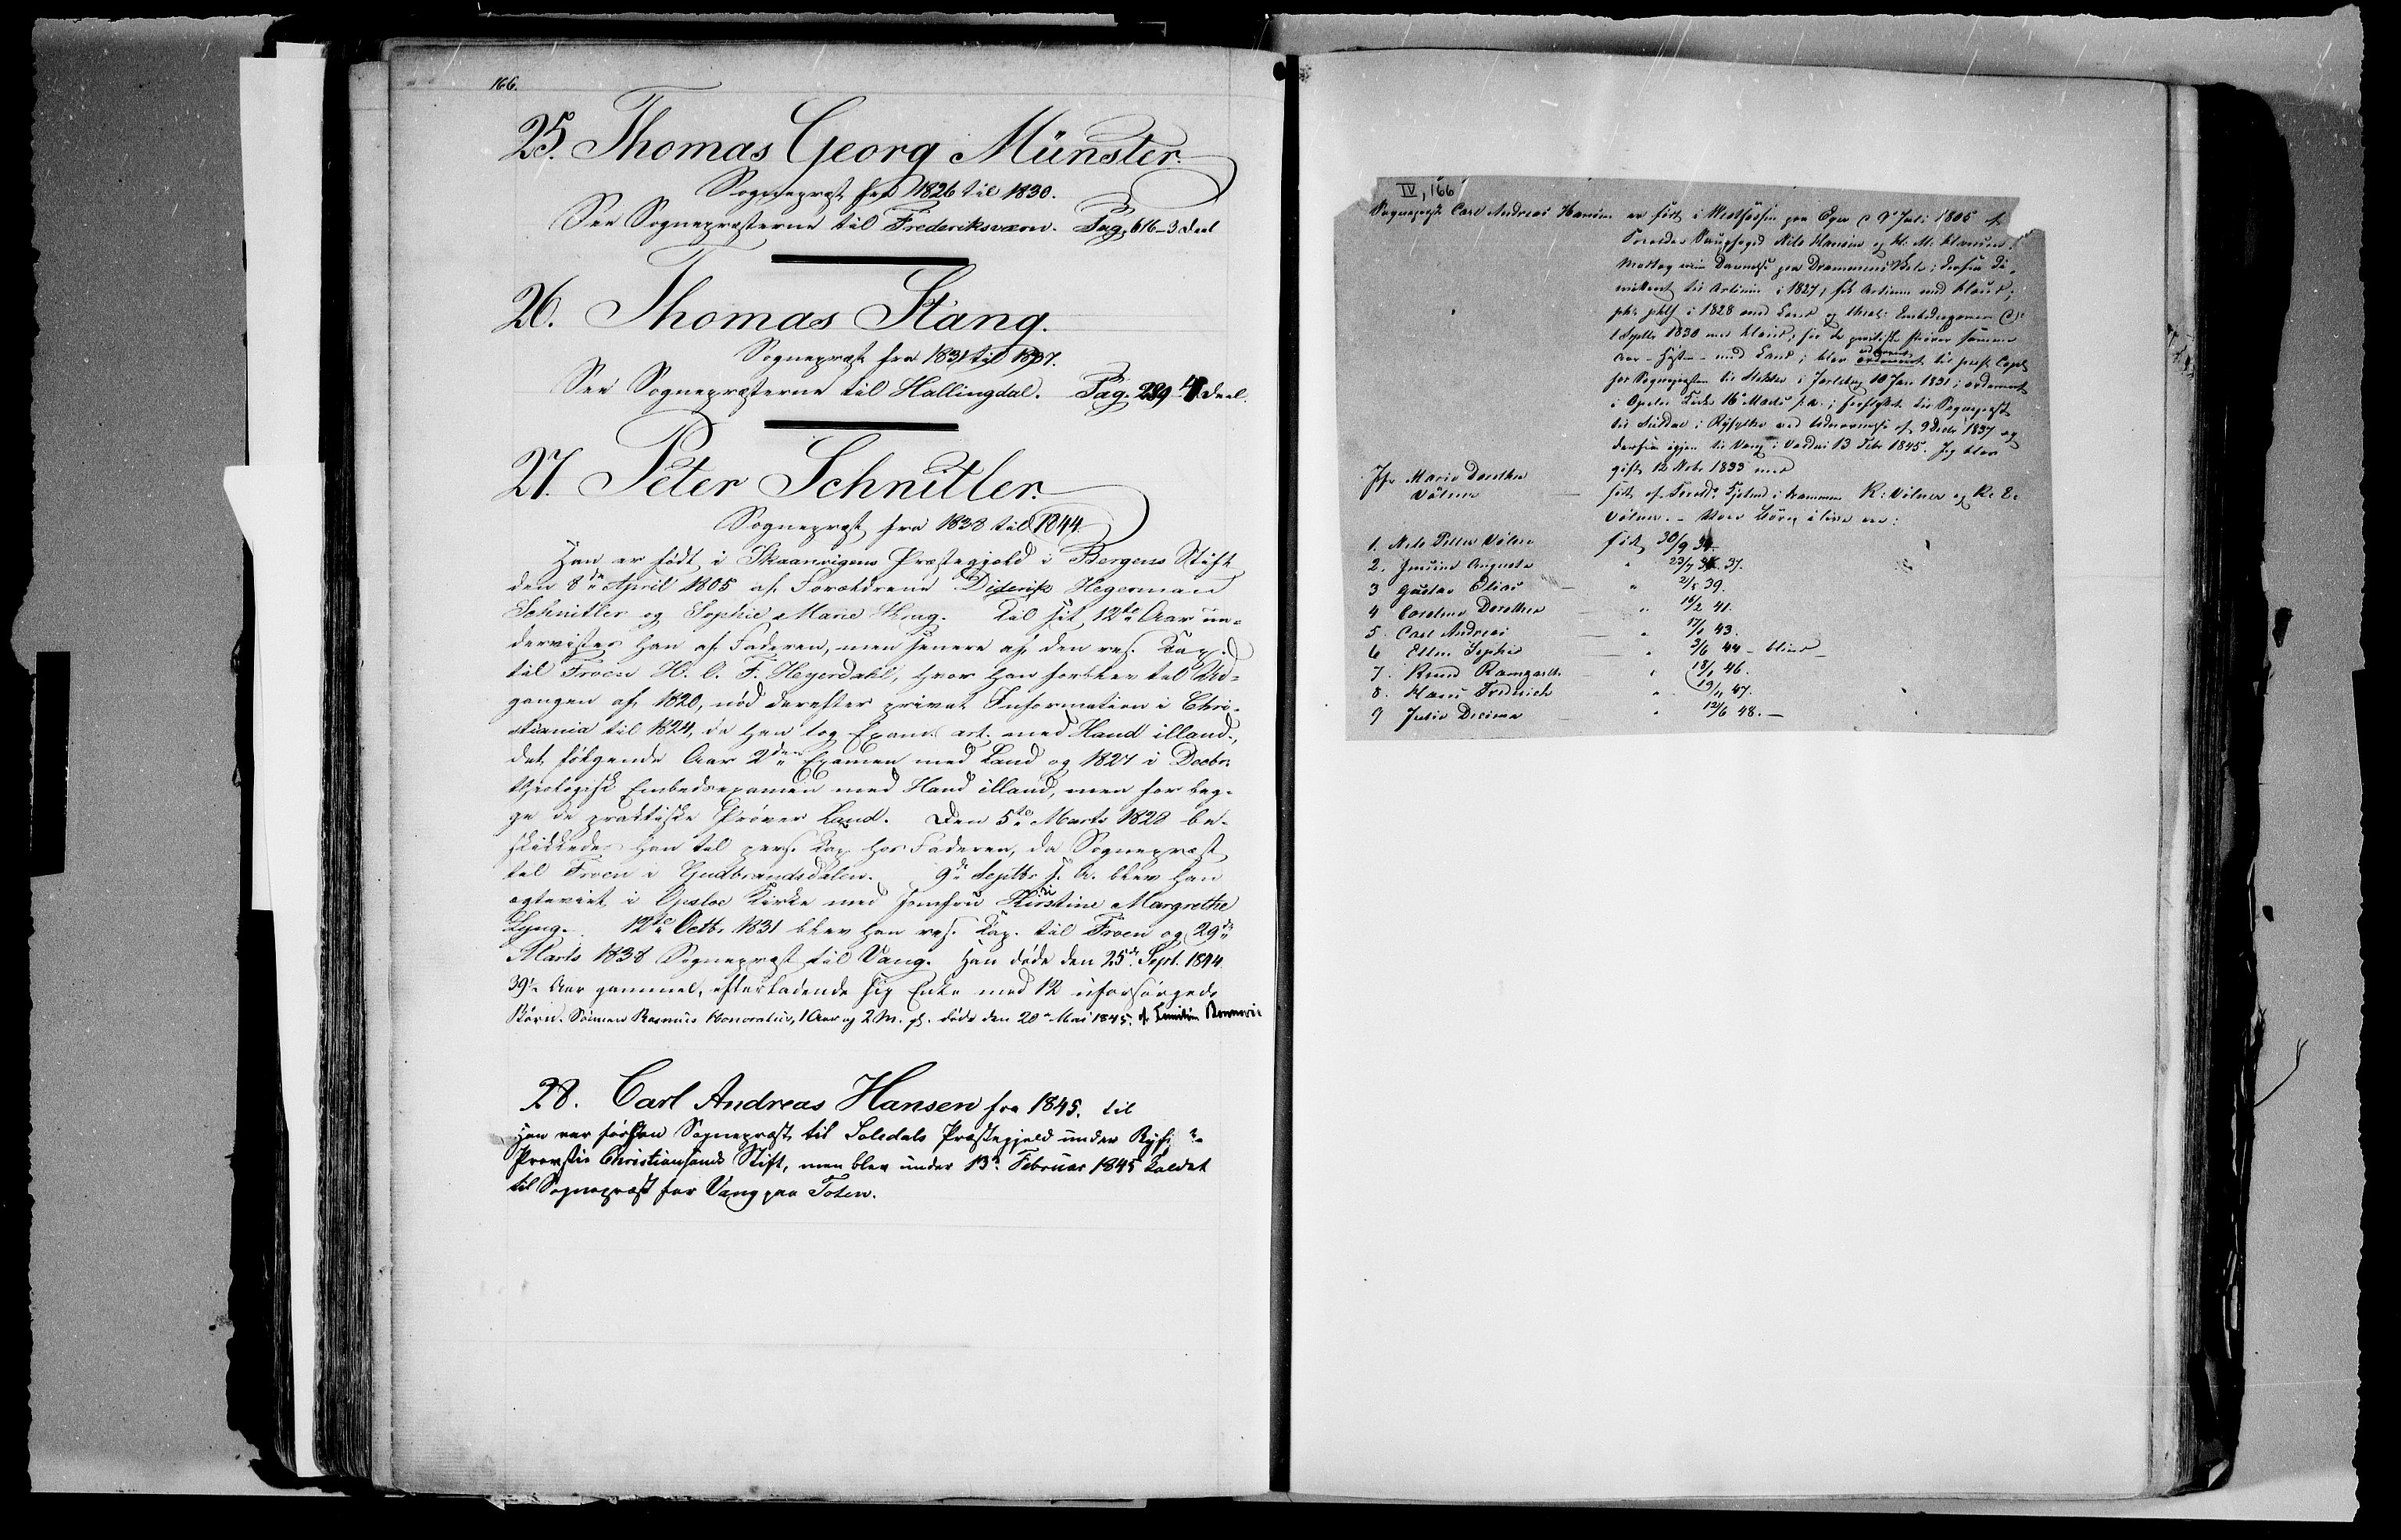 166.
25. Thomas Georg Münster.
Sognepræst fra 1826 til 1830.
See Sognepræsterne til Frederiksværn. Pag. 616 - 3. Deel
26. Thomas Stang.
Sognepræst fra 1831 til 1837.
See Sognepræsterne til Hallingdal. Pag. 289 4 Deel.
27. Peter Schnitler.
Sognepræst fra 1838 til 1844
Han er født i Skaanevigens Præstegjeld i Bergens Stift
den 8de April 1805 af Forældrene Diderik Hegerman
Schnitler og Sophie Marie Krag. Til sit 12te Aar un-
dervistes han af Faderen, men senere af den res. Kap.
til Froen H. C. F. Heyerdahl, hvor han forblev til Ud-
gangen af 1820, nød derefter privat Information i Chri-
stiania til 1824, da han tog Exam. art. med Haud illaud.,
det følgende Aar 2den Examen med Laud og 1827 i Decbr.
theologisk Embedsexamen med Haud illaud, men for beg-
ge de praktiske Prøver Laud. Den 5te Marts 1828 be-
skikkedes han til pers. Kap. hos Faderen, da Sognepræst
til Froen i Gudbrandsdalen. 9de Septbr s. A. blev han
egteviet i Opsloe Kirke med Jomfru Kirstine Margrethe
Lyng. 12te Octb. 1831 blev han res. Kap. til Froen og 29de
Marts 1838 Sognepræst til Vang. Han døde den 25de Sept. 1844
39½ Aar gammel, efterladende sig Enke med 12 uforsørgede
Børn. Sønnen Rasmus Honoratus, 1 Aar og 2 M. gl. døde den 20de Mai 1845. af
28. Carl Andreas Hansen fra 1845. til
Han var førhen Sognepræst til Soledals Præstegjeld under Ryf
Provstie Christiansands Stift, men blev under 13de Februar 1845 kaldet
til Sognepræst for Vang paa Toten.
IV, 166
Sognepræst Carl Andreas Hansen er født i Vestfossen paa Eger d 9de Juli 1805 af
Forældre Nils Hansen og M. Hansen.
Modtog min Dannelse paa Drammens Skole; derfra di-
mitteret til Artium i 1827, fik Artium med Haud;
ph: i 1828 med Laud og theol: Embedsexamen
Septbr 1830 med Haud, for de practiske Prøver samme
Aar - Høst - med Laud; blev udnævnt til pers. Capl
for Sognepræsten til Stokke i Jarlsberg 10 Jan 1831; ordineret
i Opslo Kirke 16de Marts s. A.; forflyttet til Sognepræst
til Suldal i Ryfylke ved Udnævnelse af 9 Decbr 1837 og
derfra igjen til Vang i Valders 13 Febr 1845. Jeg blev
gift 12 Nobr 1833 med
Jfr Marie Dorothea
Vølner
født af Forældre i Drammen Vølner og
Vølner. - Vore Børn i live ere:
1. Nils Petter Vølner født 30/9 34.
2. Augusta " 23/7 37.
3 Gustav Elias " 2/5 39.
4 Caroline Dorothea " 16/2 41.
5. Carl Andreas " 17/1 43.
6 Ellen Sophie " 3/6 44 - blind
7. Knud " 18/1 46.
8. Hans Fredrich " 19/11 47.
9 Julie Decima " 12/6 48. -